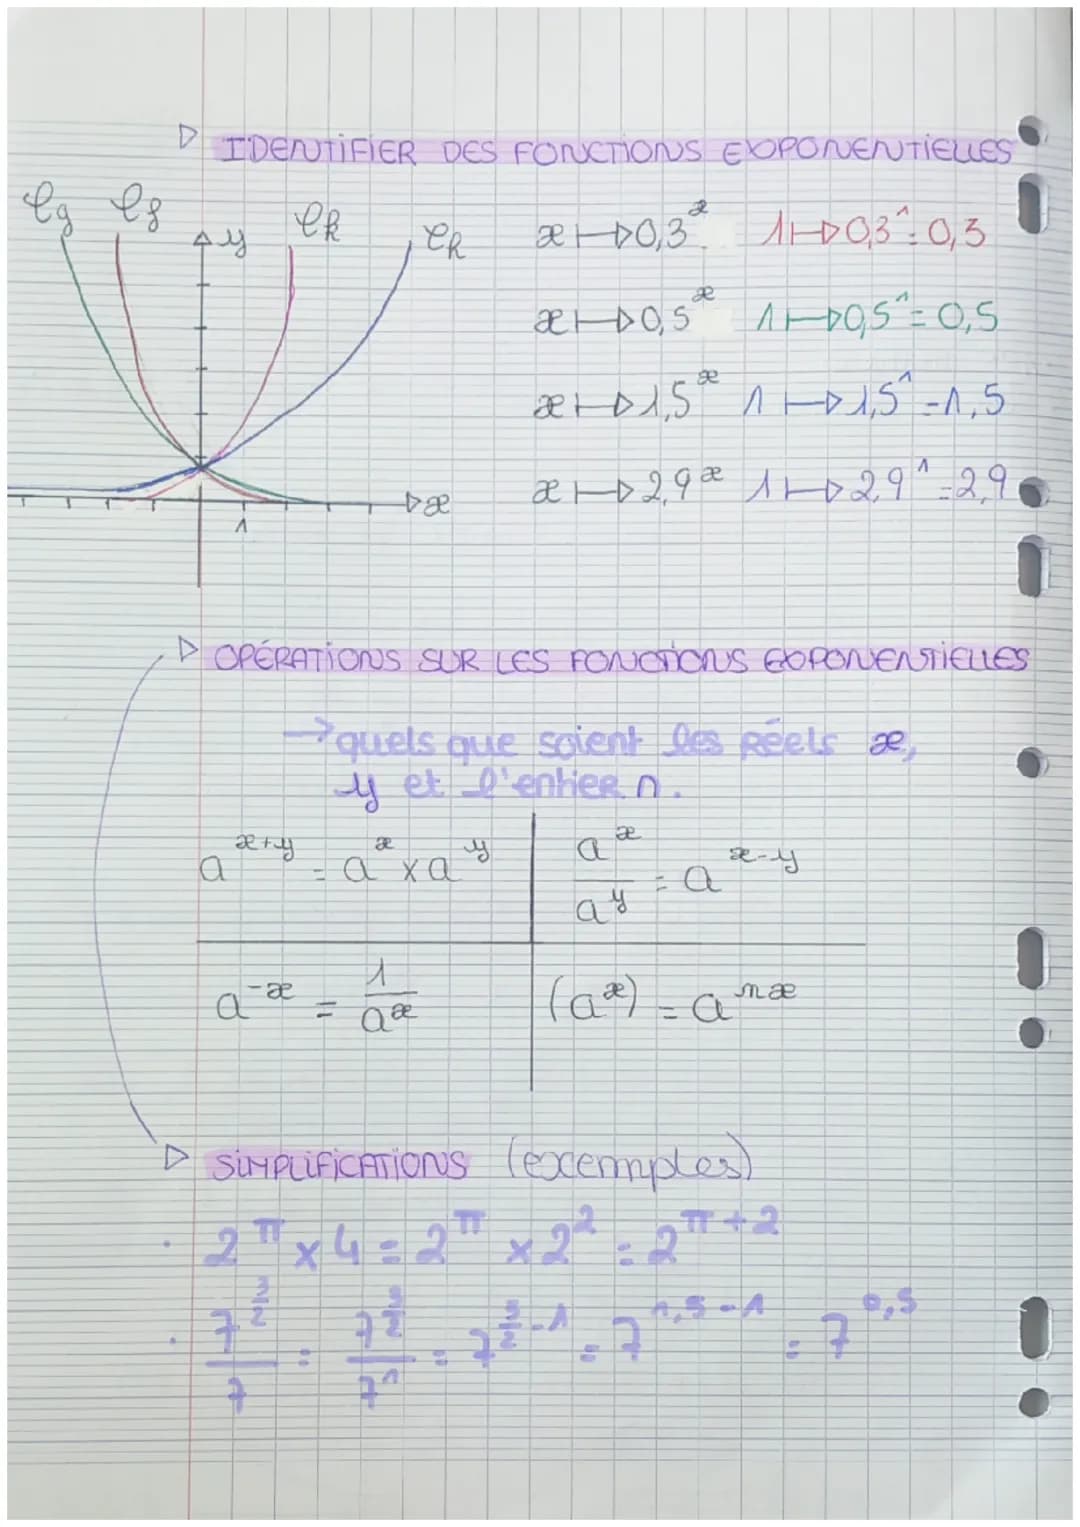 ▷ IDENTIFIER DES FONCTIONS EXPONENTIELLES
𝒞g 𝒞f y 𝒞k 𝒞h
x ↦ 0,3^x 1 ↦ 0,3^1 = 0,3
x ↦ 0,5^x 1 ↦ 0,5^1 = 0,5
x ↦ 1,5^x 1 ↦ 1,5^1 = 1,5
x ↦ 2,9^x 1 ↦ 2,9^1 = 2,9
x
1
▷ OPÉRATIONS SUR LES FONCTIONS EXPONENTIELLES
→ quels que soient les réels x,
y et l'entier n.
a^(x+y) = a^x × a^y
a^x / a^y = a^(x-y)
a^(-x) = 1 / a^x
(a^x) = a^(nx)
▷ SIMPLIFICATIONS (exemples)
• 2^π × 4 = 2^π × 2^2 = 2^(π+2)
• 7^(3/2) / 7 = 7^(3/2) / 7^1 = 7^(3/2 - 1) = 7^(1,5-1) = 7^0,5